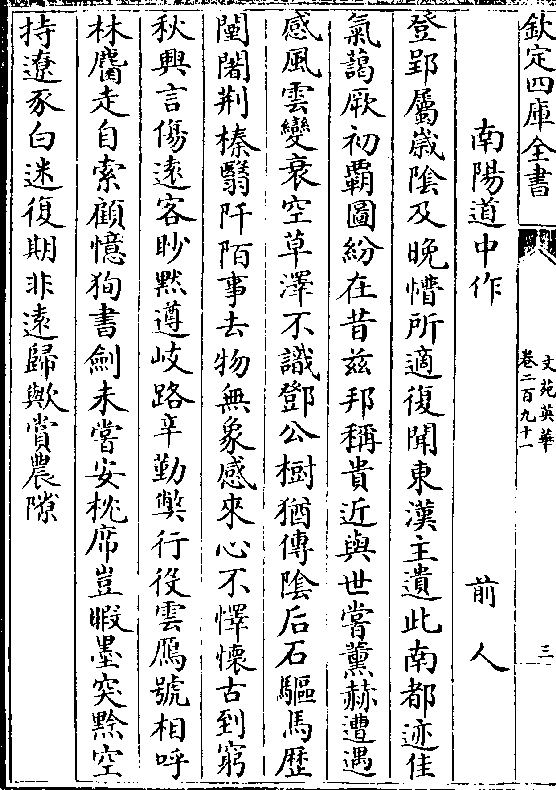 欽定四庫全書
文苑英華
卷二百九十一
三
南陽道中作
前人
登郢屬歲陰及晚懵所適復聞東漢主遺此南都迹佳
氣藹厥初霸圖紛在昔兹邦稱貴近與世嘗薰赫遭遇
感風雲變衰空草澤不識鄧公樹猶傳陰后石驅馬歴
闉闍荆榛翳阡陌事去物無象感來心不懌懷古到窮
秋興言傷遠客眇黙遵岐路辛勤弊行役雲鴈號相呼
林麕走自索顧憶狥書劍未嘗安枕席豈暇墨突黔空
持遼豕白迷復期非遠歸歟賞農隙